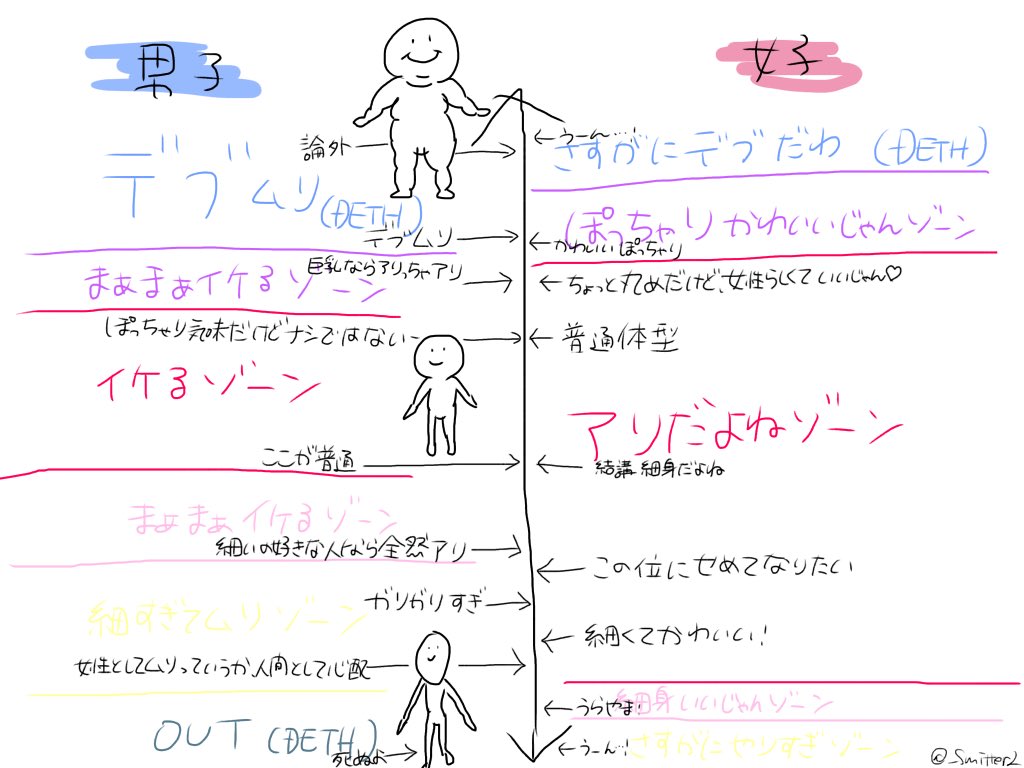 男子
論外
デブムリ(ĐETH)
デブムリ
巨乳ならアリっちゃアリ
まぁまぁイケるゾーン
ぽっちゃり気味だけどナシではない
イケるゾーン
ここが普通
まぁまぁイケるゾーン
細いの好きな人なら全然アリ
ガリガリすぎ
細すぎてムリゾーン
女性としてムリっていうか、人間として心配
OUT (ĐETH)
死ぬよ
女子
うーん…!
さすがにデブだわ (ĐETH)
ぽっちゃりかわいいじゃんゾーン
かわいいぽっちゃり
ちょっと丸めだけど、女性らしくていいじゃん♡
普通体型
アリだよねゾーン
結構細身だよね
この位にせめてなりたい
細くてかわいい!
細身いいじゃんゾーン
うらやま!
うーん…!
さすがにヤリすぎゾーン
@_Smitter2